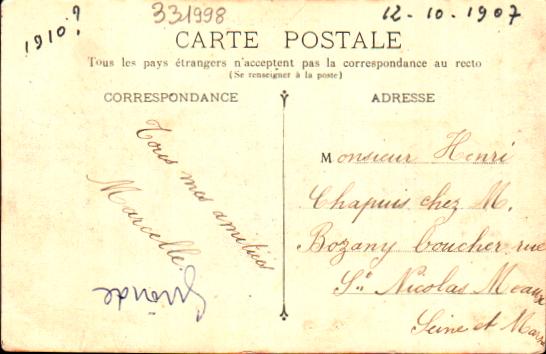 1910?
331998
12-10-1907
CARTE POSTALE
Tous les pays étrangers n'acceptent pas la correspondance au recto
(Se renseigner à la poste)
CORRESPONDANCE
Tous mes amitiés
Marcelle
Gironde
ADRESSE
Monsieur Henri
Chapuis chez M.
Bozany boucher rue
St Nicolas Meaux
Seine et Marne